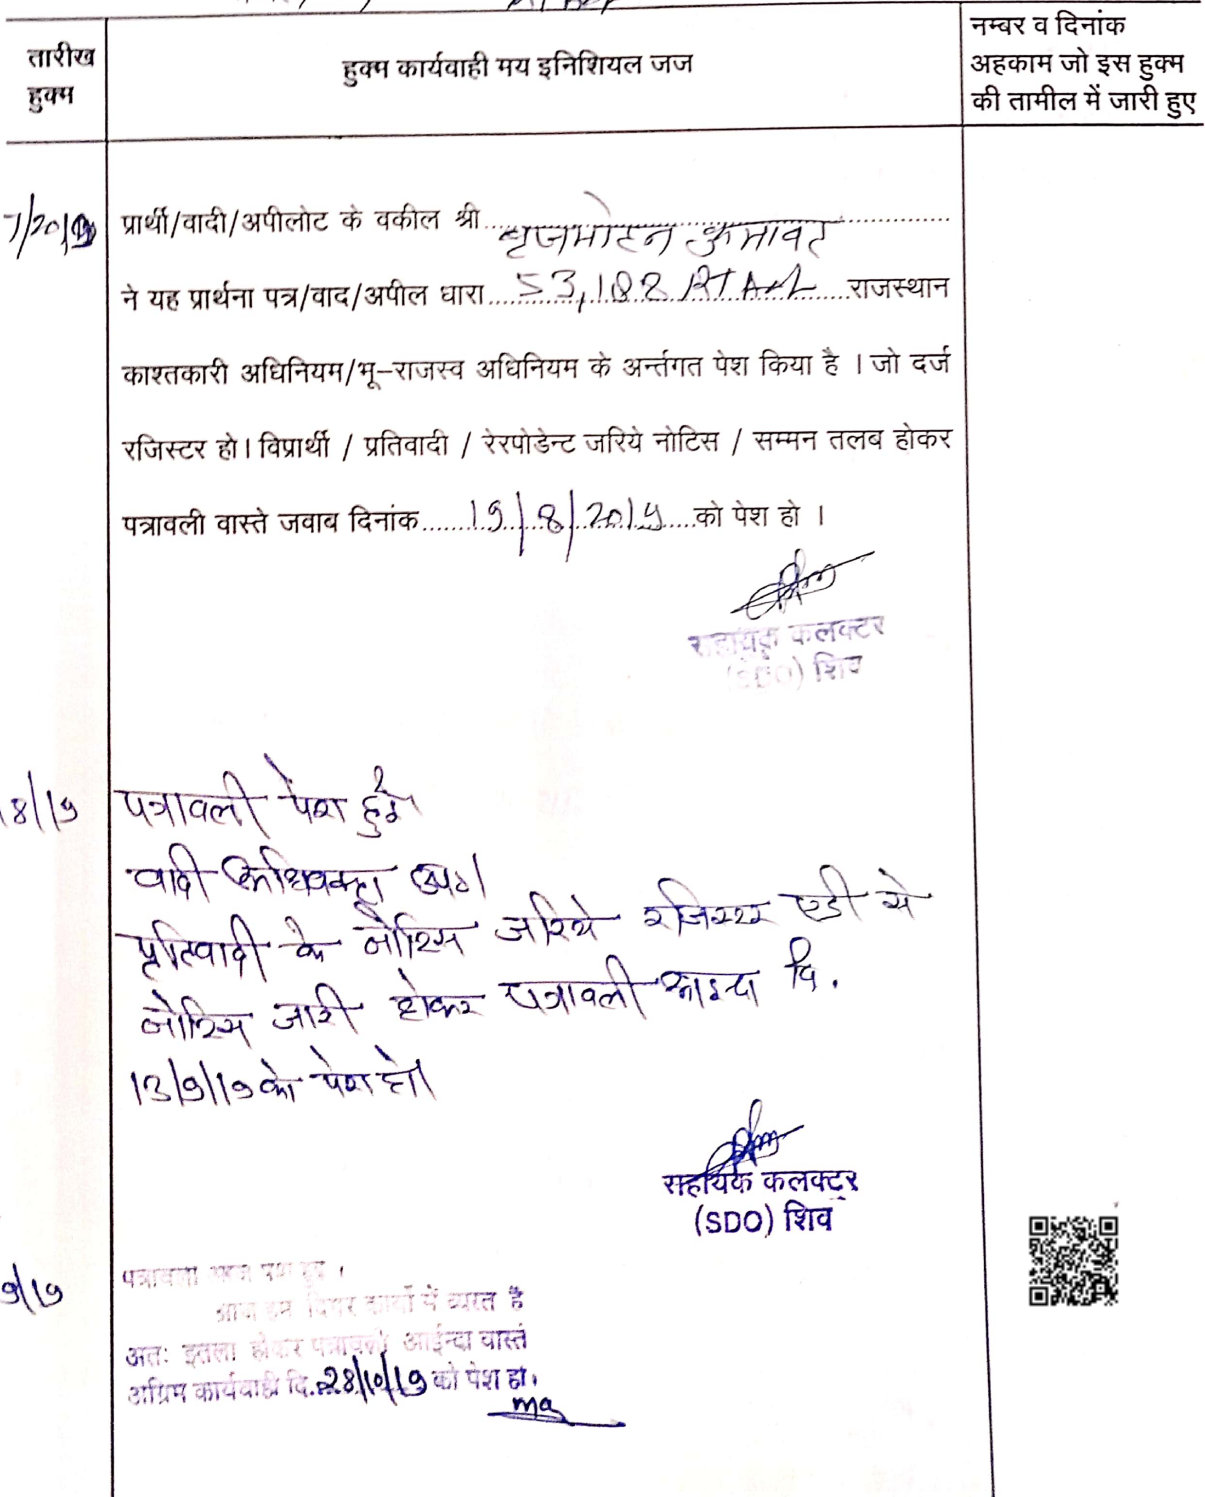 तारीख हुक्म
हुक्म कार्यवाही मय इनिशियल जज
नम्बर व दिनांक
अहकाम जो इस हुक्म
की तामील में जारी हुए
7/2019 प्रार्थी/वादी/अपीलोट के वकील श्री बृजमोहन कुमावत
ने यह प्रार्थना पत्र/वाद/अपील धारा 53,188 RT Act राजस्थान
काश्तकारी अधिनियम/भू-राजस्व अधिनियम के अर्न्तगत पेश किया है । जो दर्ज
रजिस्टर हो। विप्रार्थी / प्रतिवादी / रेरपोडेन्ट जरिये नोटिस / सम्मन तलब होकर
पत्रावली वास्ते जवाब दिनांक 19/8/2019 को पेश हो ।
सहायक कलक्टर
(SDO) शिव
8/19 पत्रावली पेश हुई
वादी अधिवक्ता उप।
प्रतिवादी के नोटिस जरिये रजिस्टर एडी से
नोटिस जारी होकर पत्रावली आइन्दा दि.
13/9/19 को पेश हो।
सहायक कलक्टर
(SDO) शिव
9/19 पत्रावली आज पेश हुई ।
आज हम दिगर कार्यो में व्यस्त है
अतः इतला होकर पत्रावली आईन्दा वास्ते
अग्रिम कार्यवाही दि. 28/10/19 को पेश हो।